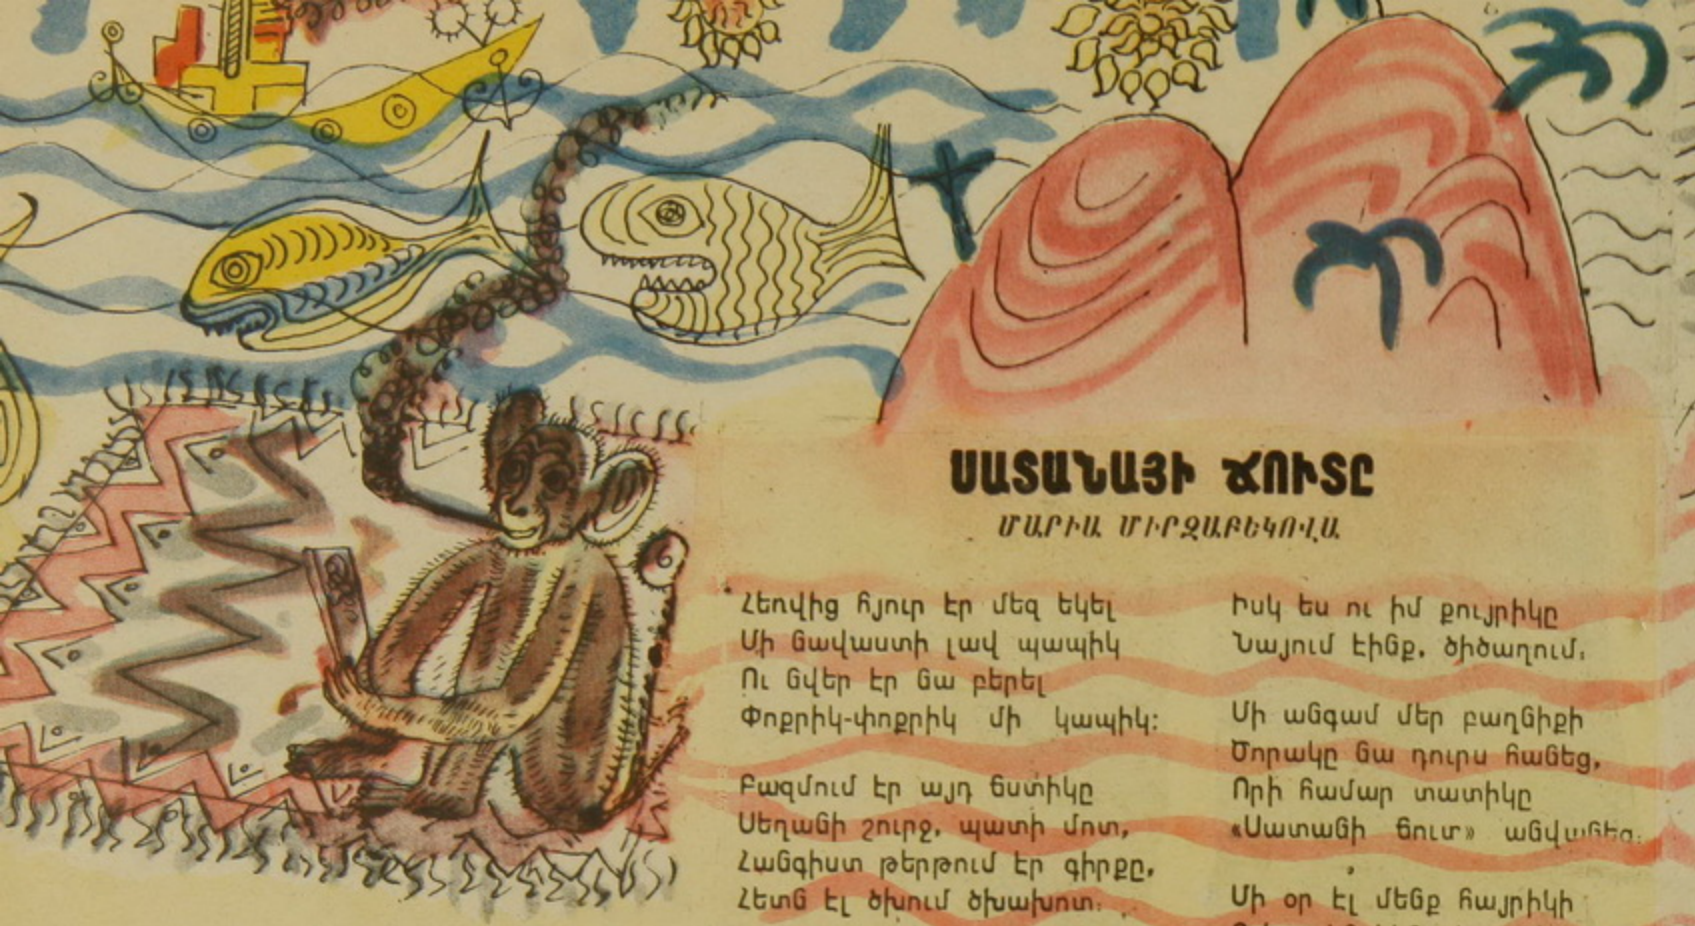 ՍԱՏԱՆԱՅԻ ՃՈՒՏԸ
ՄԱՐԻԱ ՄԻՐԶԱԲԵԿՈՎԱ
Հեռվից հյուր էր մեզ եկել
Մի նավաստի լավ պապիկ
Ու նվեր էր նա բերել
Փոքրիկ-փոքրիկ մի կապիկ։
Բազմում էր այդ ճստիկը
Սեղանի շուրջ, պատի մոտ,
Հանգիստ թերթում էր գիրքը,
Հետն էլ ծխում ծխախոտ։
Իսկ ես ու իմ քույրիկը
Նայում էինք, ծիծաղում։
Մի անգամ մեր բաղնիքի
Ծորակը նա դուրս հանեց,
Որի համար տատիկը
«Սատանի ճուտ» անվանեց։
Մի օր էլ մենք հայրիկի